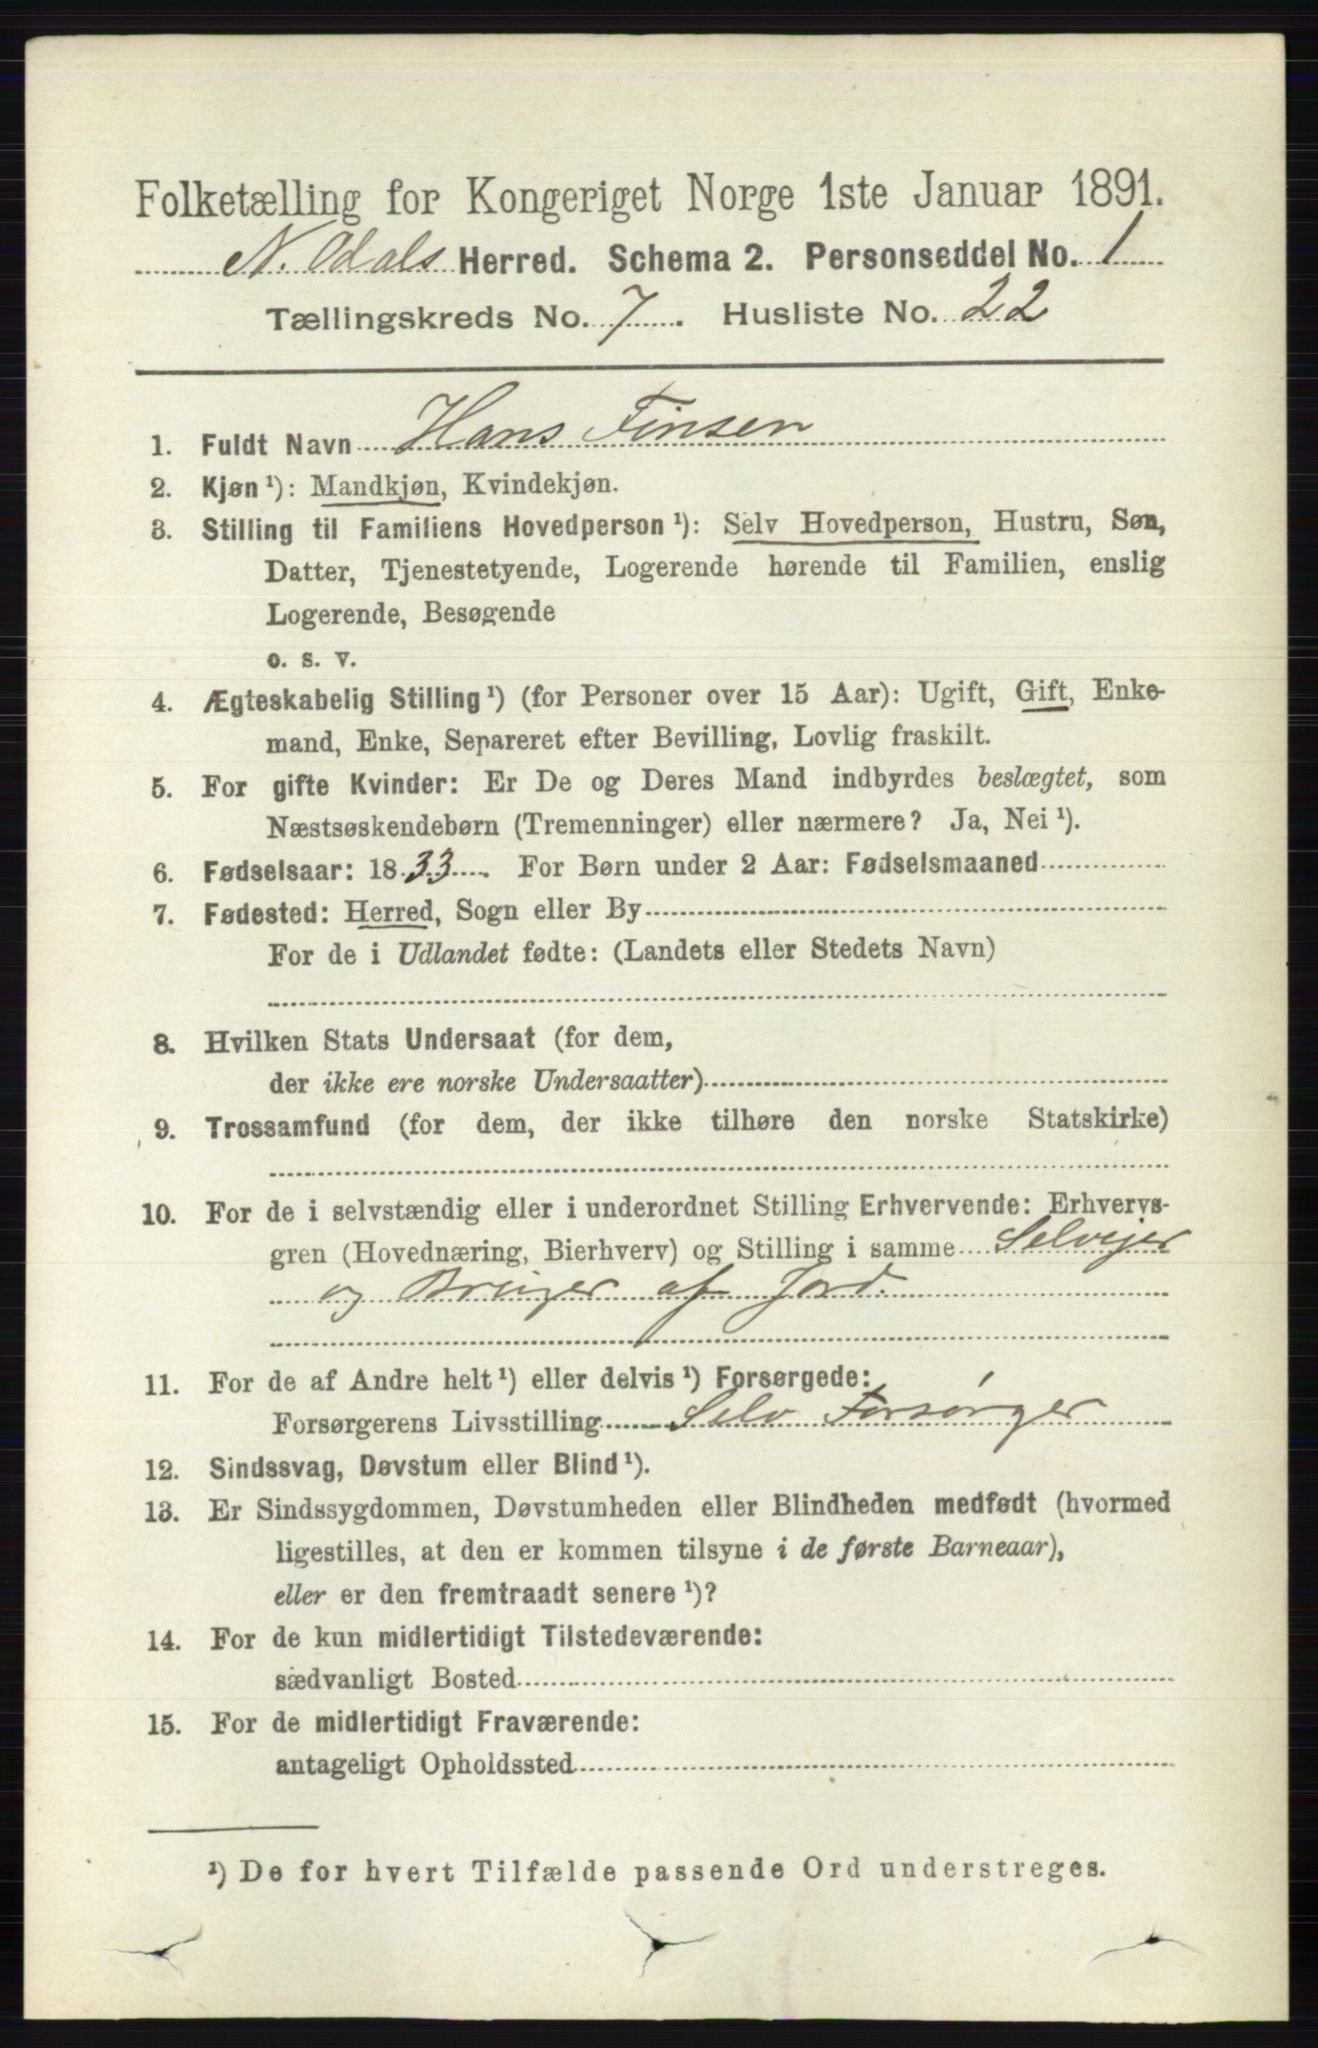 Folketælling for Kongeriget Norge 1ste Januar 1891.
N. Odals Herred. Schema 2. Personseddel No. 1
Tællingskreds No. 7. Husliste No. 22
1. Fuldt Navn Hans Finsen
2. Kjøn ¹): Mandkjøn, Kvindekjøn.
3. Stilling til Familiens Hovedperson ¹): Selv Hovedperson, Hustru, Søn,
Datter, Tjenestetyende, Logerende hørende til Familien, enslig
Logerende, Besøgende
o. s. v.
4. Ægteskabelig Stilling ¹) (for Personer over 15 Aar): Ugift, Gift, Enke-
mand, Enke, Separeret efter Bevilling, Lovlig fraskilt.
5. For gifte Kvinder: Er De og Deres Mand indbyrdes beslægtet, som
Næstsøskendebørn (Tremenninger) eller nærmere? Ja, Nei ¹).
6. Fødselsaar: 1833. For Børn under 2 Aar: Fødselsmaaned
7. Fødested: Herred, Sogn eller By
For de i Udlandet fødte: (Landets eller Stedets Navn)
8. Hvilken Stats Undersaat (for dem,
der ikke ere norske Undersaatter)
9. Trossamfund (for dem, der ikke tilhøre den norske Statskirke)
10. For de i selvstændig eller i underordnet Stilling Erhvervende: Erhvervs-
gren (Hovednæring, Bierhverv) og Stilling i samme Selvejer
og Bruger af Jord.
11. For de af Andre helt ¹) eller delvis ¹) Forsørgede:
Forsørgerens Livsstilling Selv Forsørger
12. Sindssvag, Døvstum eller Blind ¹).
13. Er Sindssygdommen, Døvstumheden eller Blindheden medfødt (hvormed
ligestilles, at den er kommen tilsyne i de første Barneaar),
eller er den fremtraadt senere ¹)?
14. For de kun midlertidigt Tilstedeværende:
sædvanligt Bosted
15. For de midlertidigt Fraværende:
antageligt Opholdssted
¹) De for hvert Tilfælde passende Ord understreges.